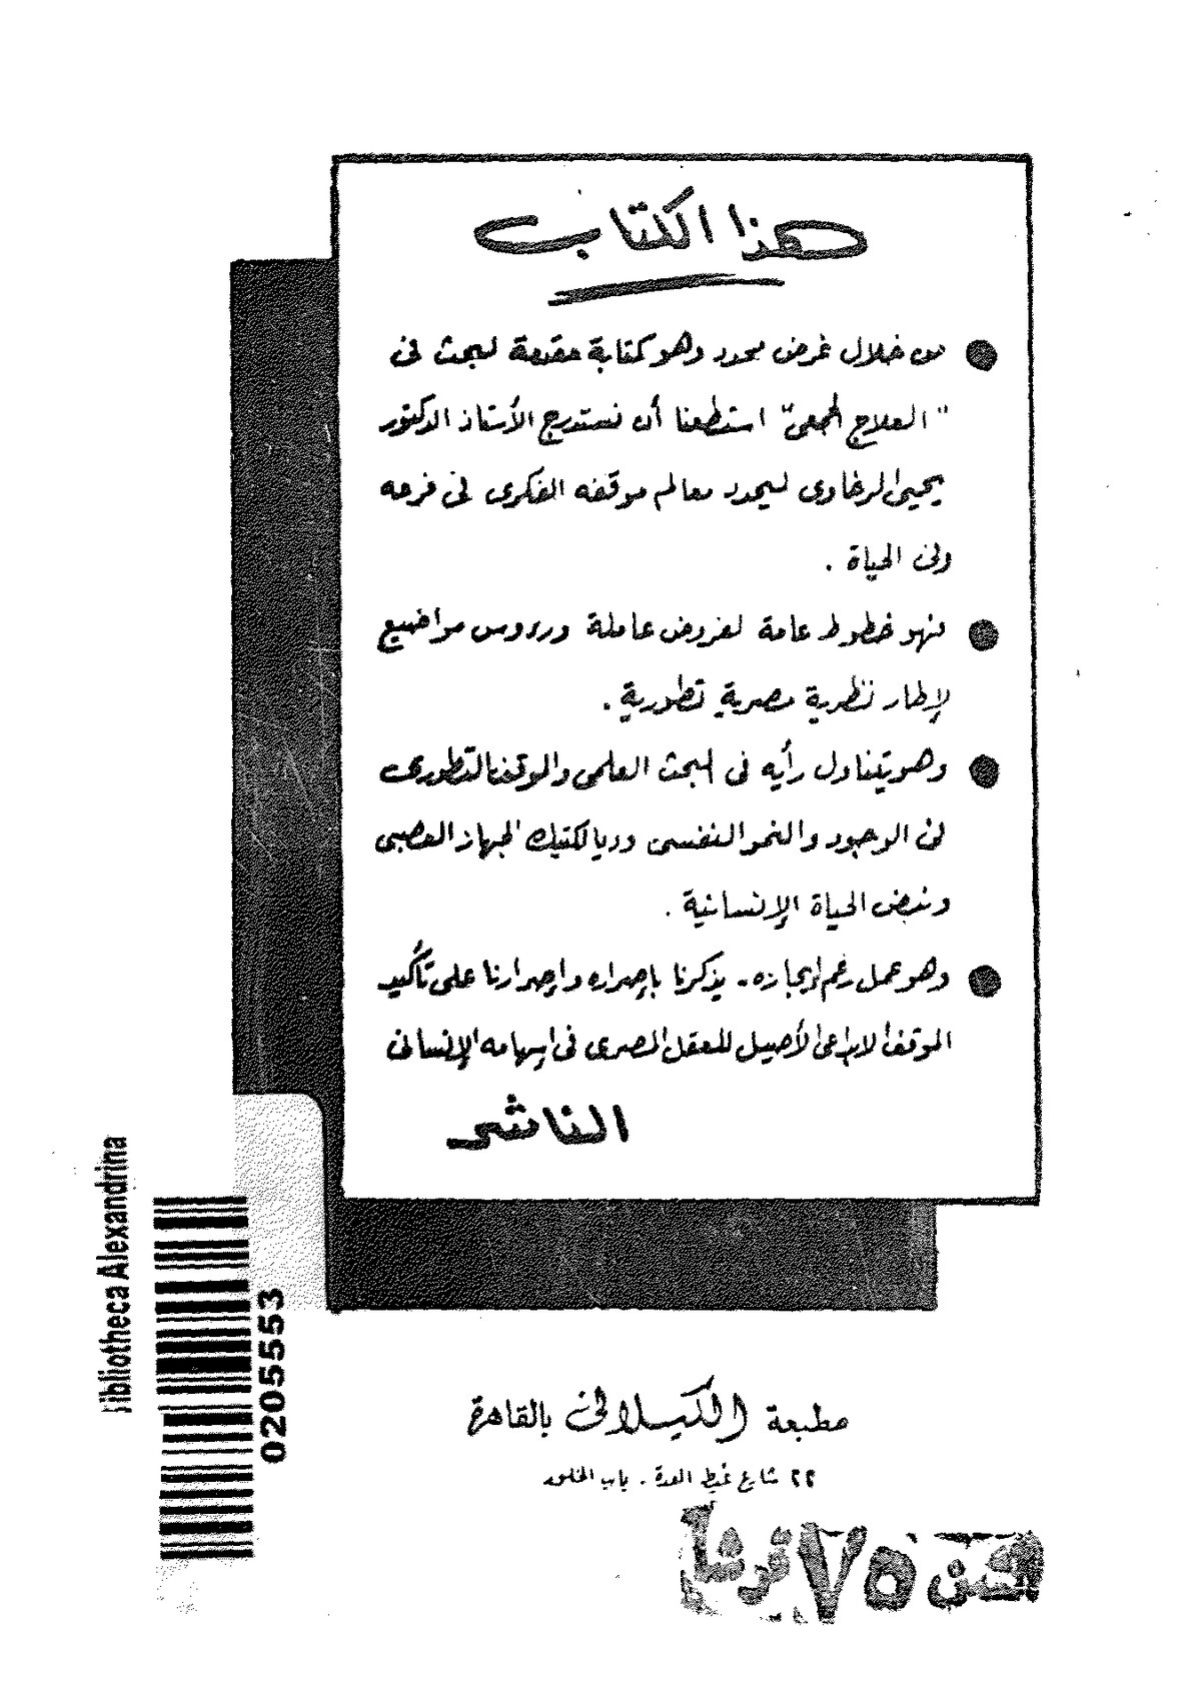 هذا الكتاب
● من خلال غرض محدد وهو كتابة مقدمة لبحث فى
"العلاج الجمعى" استطعنا أن نستدرج الأستاذ الدكتور
يحيى الرخاوى ليحدد معالم موقفه الفكرى فى فرعه
وفى الحياة .
● فهو خطوط عامة لفروض عاملة ورءوس مواضيع
لإطار نظرية مصرية تطورية .
● وهو يتناول رأيه فى البحث العلمى والموقف التطورى
فى الوجود والنمو النفسى وديالكتيك الجهاز العصبى
ونبض الحياة الإنسانية .
● وهو عمل رغم إيجازه - يذكرنا بإصراره وإصرارنا على تأكيد
الموقف الابداعى الأصيل للعقل المصرى فى إسهامه الإنسانى
الناشر
مطبعة الكيلانى بالقاهرة
٢٢ شارع غيط العدة - باب الخلق
الثمن ٧٥ قرشا
ibliotheca Alexandrina
0205553